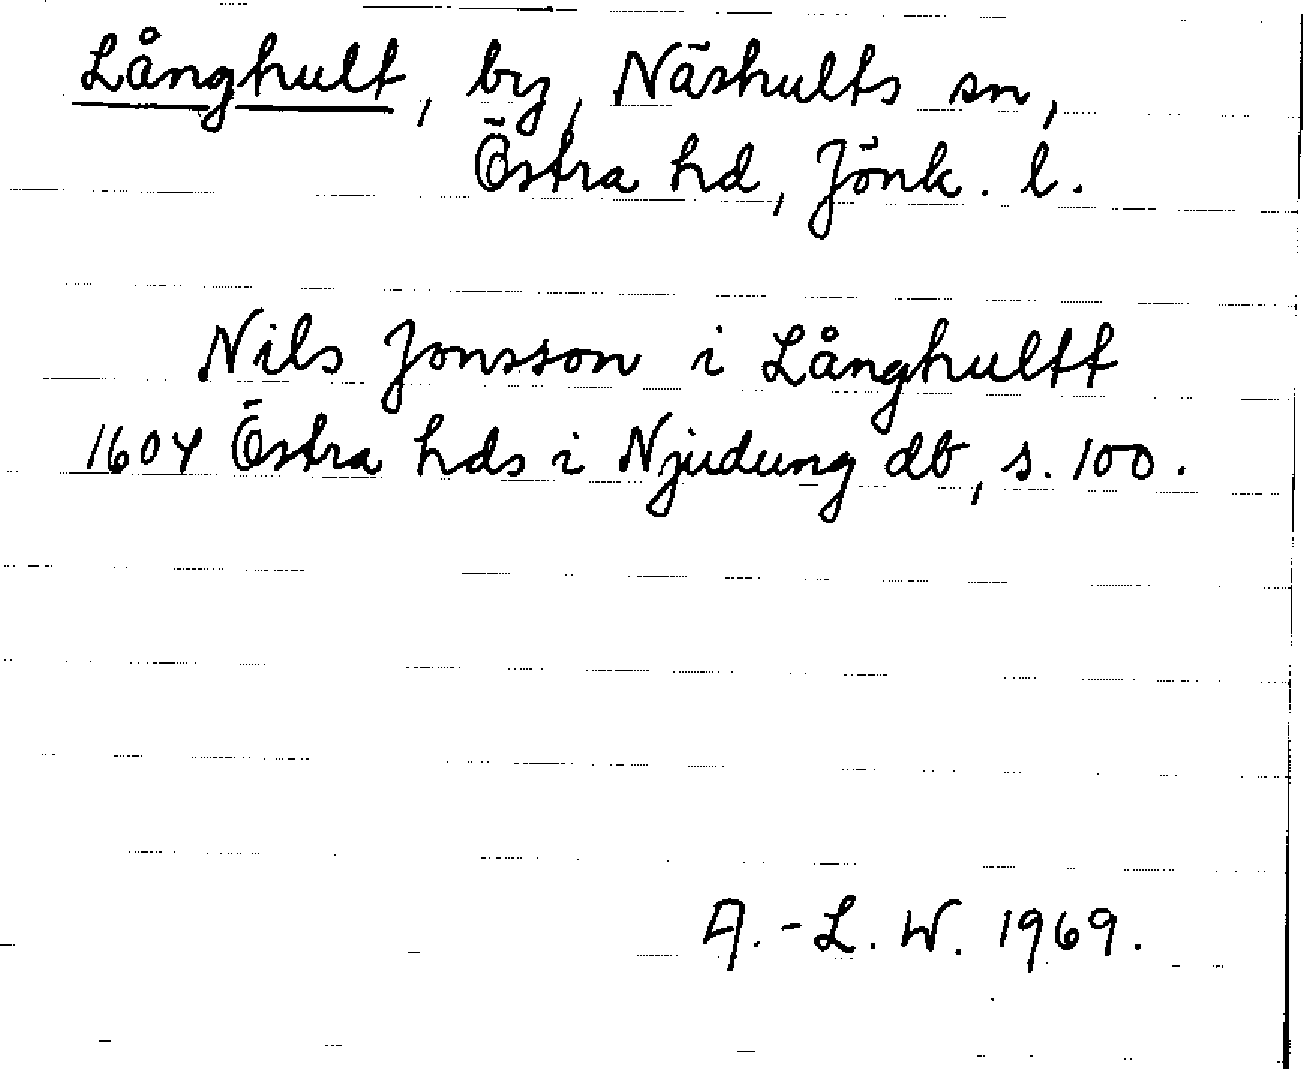 Långhult, by, Näshults sn,
Östra hd, Jönk. l.
Nils Jonsson i Långhultt
1604 Östra hds i Njudung db, s. 100.
A.-L. W. 1969.